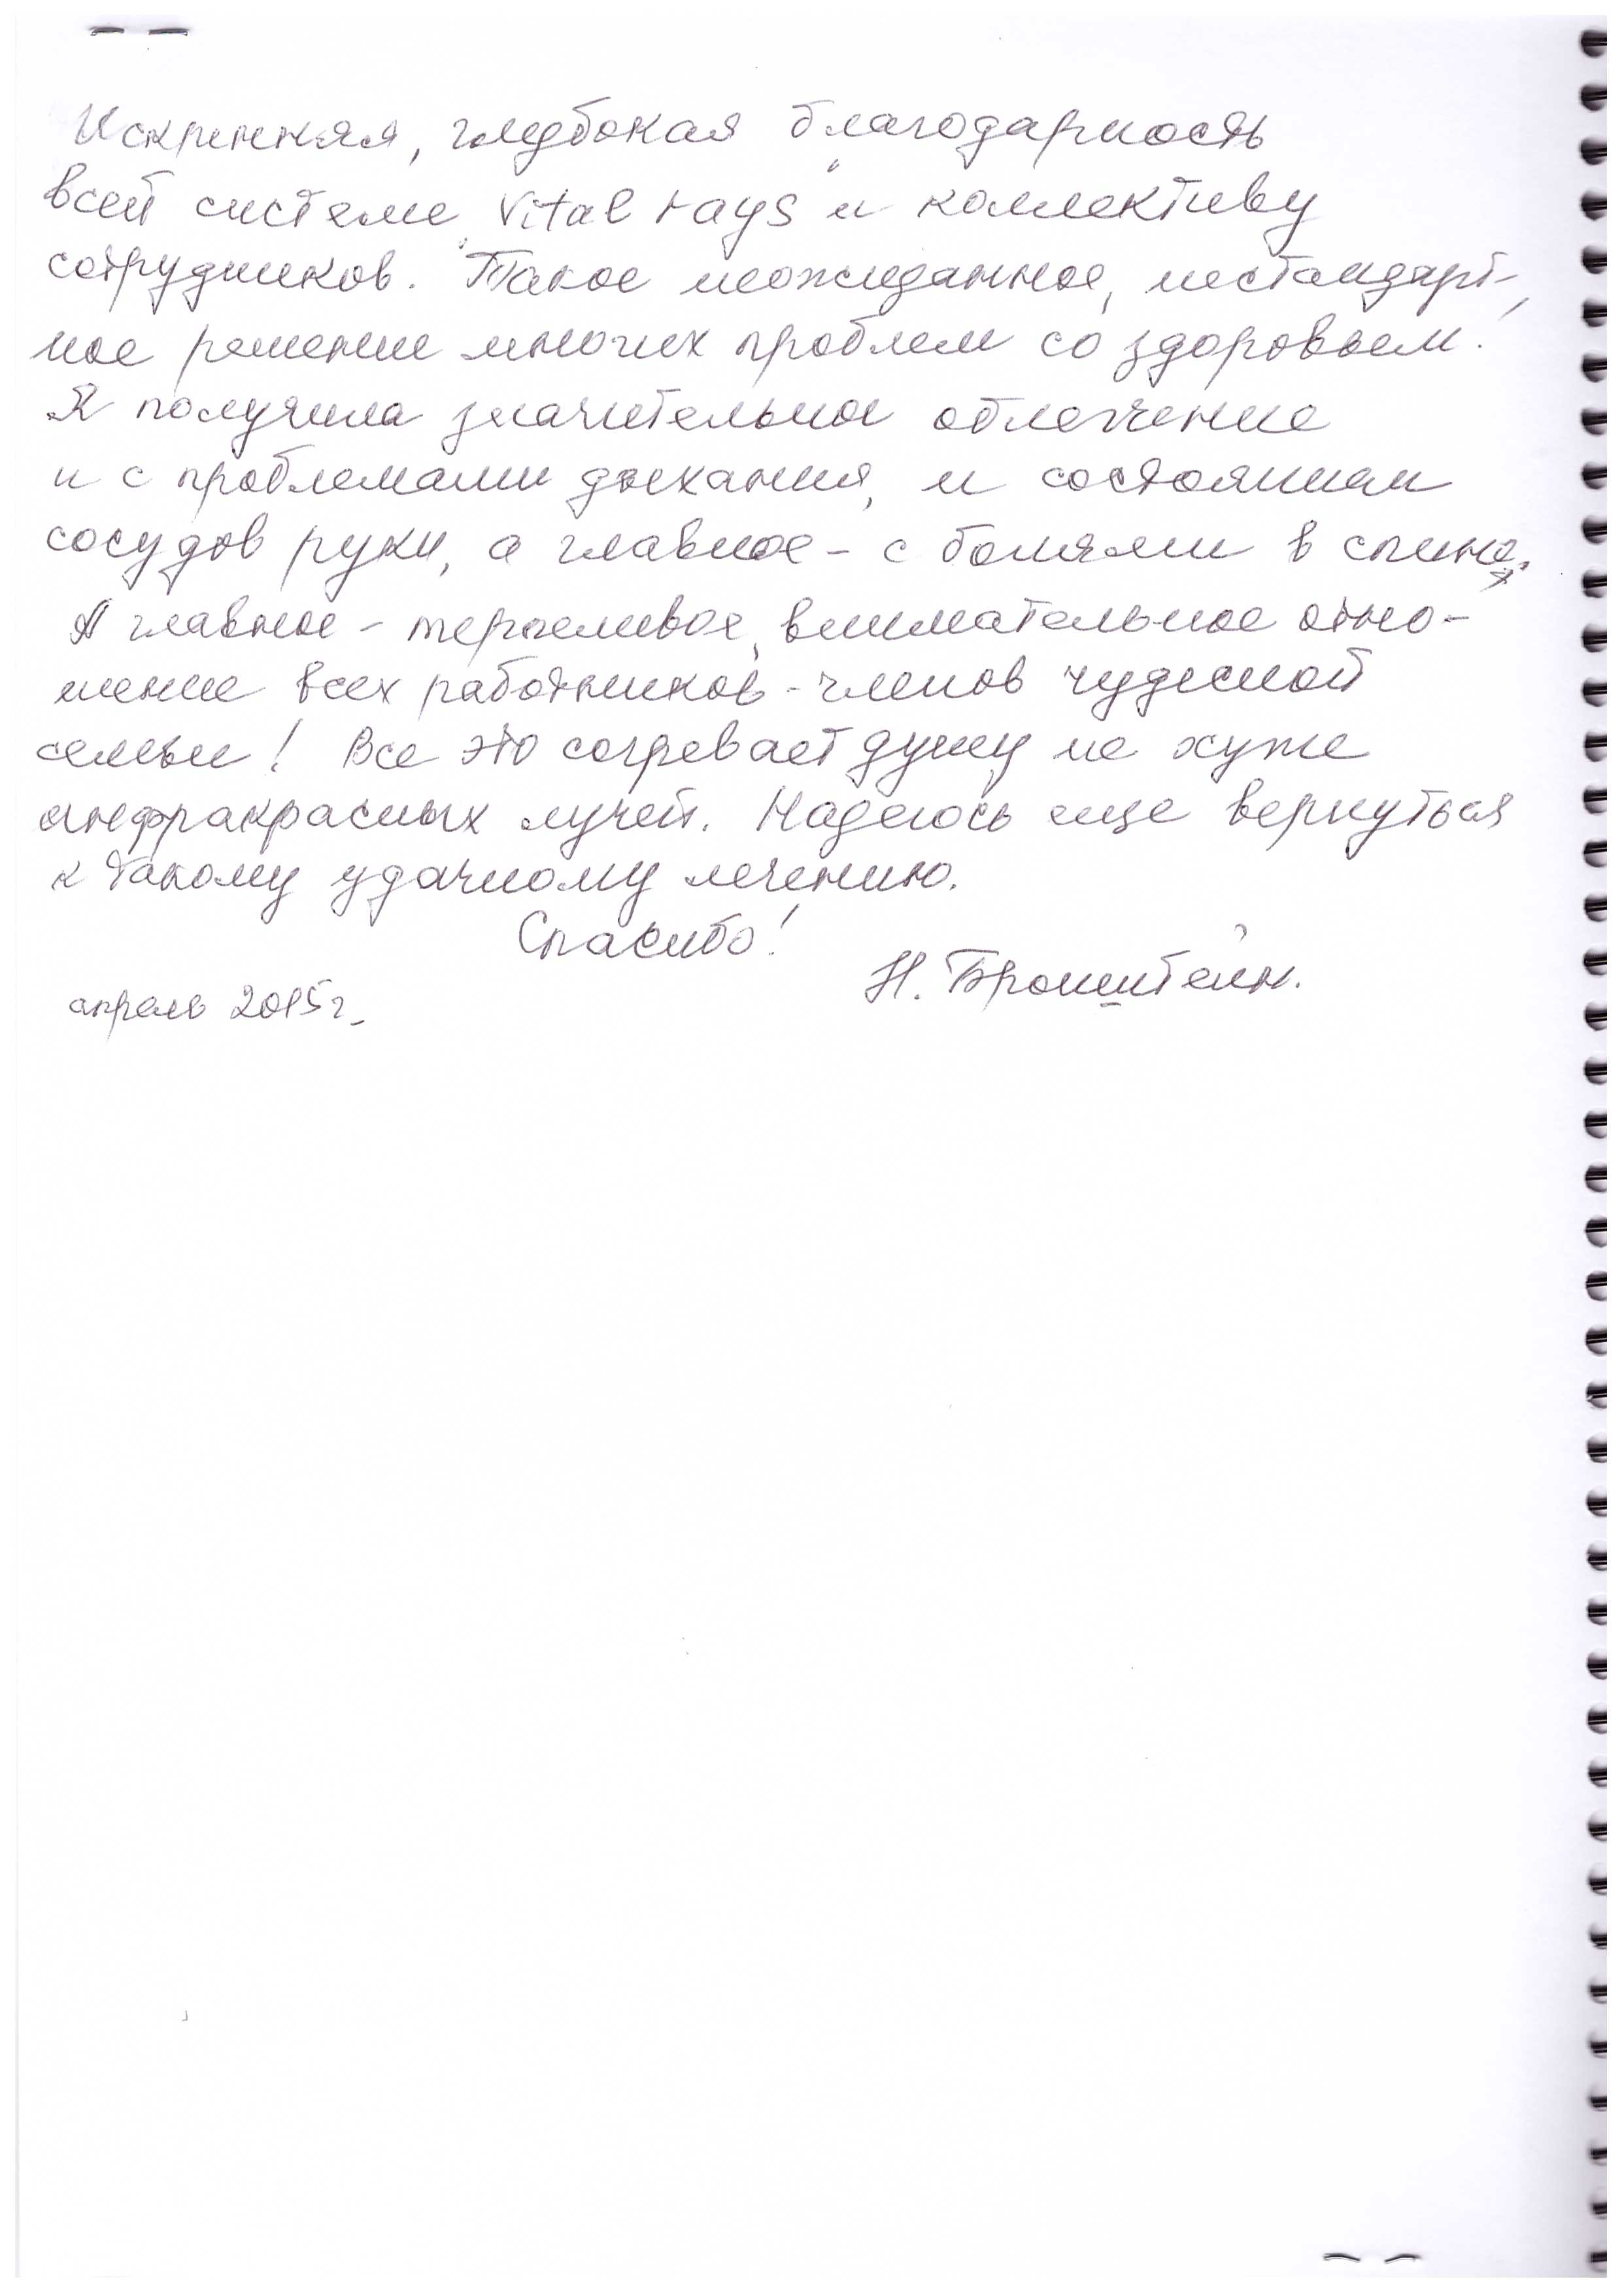 Искренняя, глубокая благодарность
всей системе „Vital rays" и коллективу
сотрудников. Такое неожиданное, нестандарт-
ное решение многих проблем со здоровьем.
Я получила значительное облегчение
и с проблемами дыхания, и состоянием
сосудов руки, а главное - с болями в спине.
А главное - терпеливое, внимательное отно-
шение всех работников - членов чудесной
семьи! Все это согревает душу не хуже
инфракрасных лучей. Надеюсь еще вернуться
к такому удачному лечению.
Спасибо!
Н. Бронштейн.
апрель 2015 г.